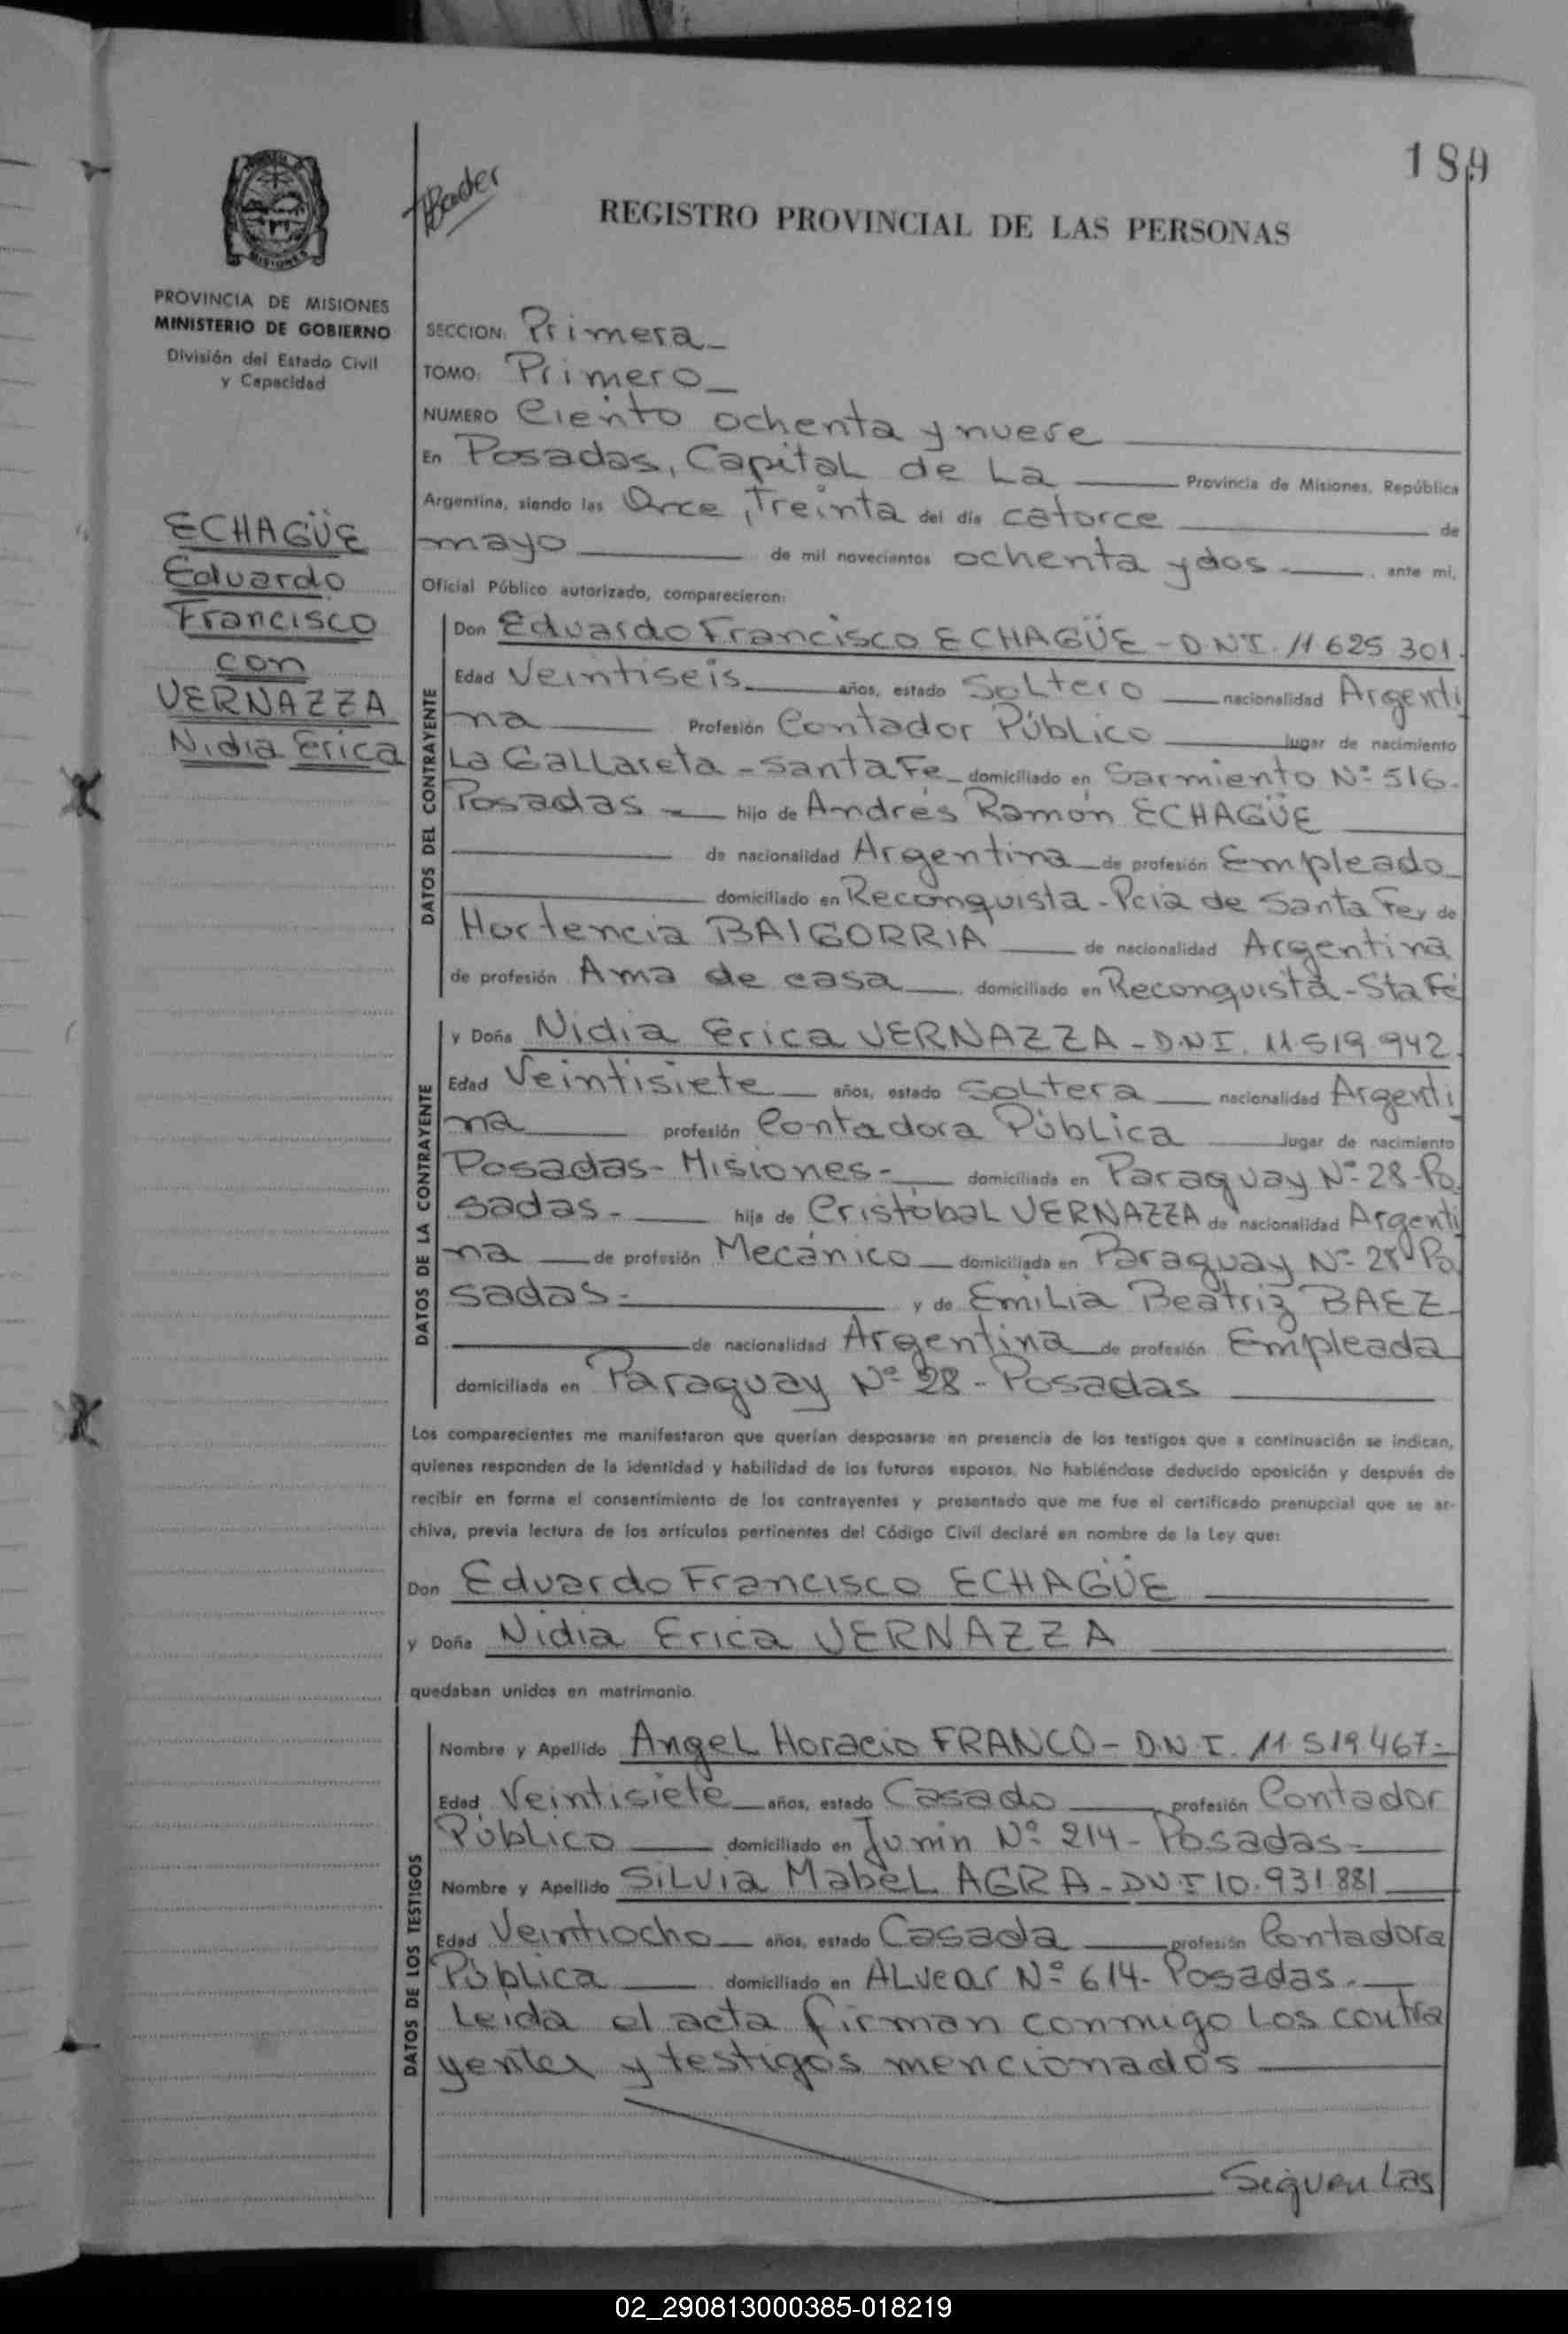 189
Bader
REGISTRO PROVINCIAL DE LAS PERSONAS
MISIONES
PROVINCIA DE MISIONES
MINISTERIO DE GOBIERNO
División del Estado Civil
y Capacidad
SECCION: Primera_
TOMO: Primero_
NUMERO Ciento ochenta y nueve
En Posadas, Capital de La Provincia de Misiones, República
Argentina, siendo las Once, Treinta del día catorce de
mayo de mil novecientos ochenta y dos. , ante mi,
Oficial Público autorizado, comparecieron:
ECHAGÜE
Eduardo
Francisco
con
VERNAZZA
Nidia Erica
DATOS DEL CONTRAYENTE
Don Eduardo Francisco ECHAGÜE - D.N.I. 11 625 301.
Edad Veintiseis años, estado Soltero nacionalidad Argenti
na Profesión Contador Público lugar de nacimiento
La Gallareta - Santa Fe domiciliado en Sarmiento Nº 516.
Posadas hijo de Andrés Ramón ECHAGÜE
de nacionalidad Argentina de profesión Empleado
domiciliado en Reconquista - Pcia de Santa Fe y de
Hortencia BAIGORRIA de nacionalidad Argentina
de profesión Ama de casa domiciliado en Reconquista - Sta Fé
DATOS DE LA CONTRAYENTE
y Doña Nidia Erica VERNAZZA - D.N.I. 11.519.942.
Edad Veintisiete años, estado Soltera nacionalidad Argenti
na profesión Contadora Pública lugar de nacimiento
Posadas - Misiones - domiciliada en Paraguay Nº 28 - Po
sadas - hija de Cristóbal VERNAZZA de nacionalidad Argenti
na de profesión Mecánico domiciliada en Paraguay Nº 28 Po
sadas - y de Emilia Beatriz BAEZ
de nacionalidad Argentina de profesión Empleada
domiciliada en Paraguay Nº 28 - Posadas
Los comparecientes me manifestaron que querían desposarse en presencia de los testigos que a continuación se indican,
quienes responden de la identidad y habilidad de los futuros esposos. No habiéndose deducido oposición y después de
recibir en forma el consentimiento de los contrayentes y presentado que me fue el certificado prenupcial que se ar-
chiva, previa lectura de los artículos pertinentes del Código Civil declaré en nombre de la Ley que:
Don Eduardo Francisco ECHAGÜE
y Doña Nidia Erica VERNAZZA
quedaban unidos en matrimonio.
DATOS DE LOS TESTIGOS
Nombre y Apellido Angel Horacio FRANCO - D.N.I. 11.519.467 -
Edad Veintisiete años, estado Casado profesión Contador
Público domiciliado en Junin Nº 214 - Posadas -
Nombre y Apellido Silvia Mabel AGRA - DNI 10.931.881
Edad Veintiocho años, estado Casada profesión Contadora
Pública domiciliado en Alvear Nº 614 - Posadas. -
Leida el acta firman conmigo los contra
yentes y testigos mencionados
Siguen Las
02_290813000385-018219